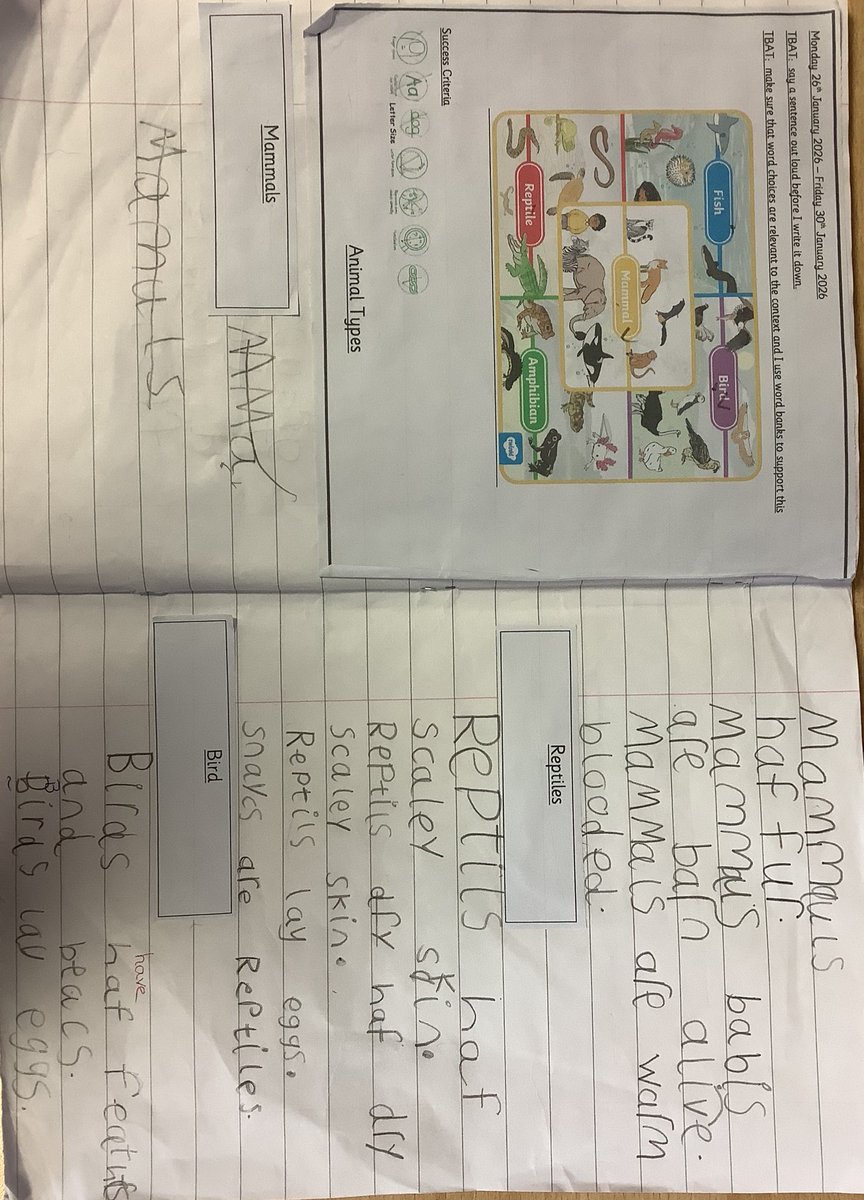 Monday 26th January 2026 – Friday 30th January 2026
TBAT: say a sentence out loud before I write it down.
TBAT: make sure that word choices are relevant to the context and I use word banks to support this
Fish
Bird
Mammal
Reptile
Amphibian
Success Criteria
Aa
dog
Letter Size
Animal Types
Mammals
MMa
Mamals
Mammals
haf fur.
Mammals babis
are barn alive.
Mammals are warm
blooded.
Reptiles
Reptils haf
scaley skin.
Reptils dry haf dry
scaley skin.
Reptils lay eggs.
snakes are Reptiles.
Bird
have
Birds haf feathfs
and beacs.
Birds lay eggs.